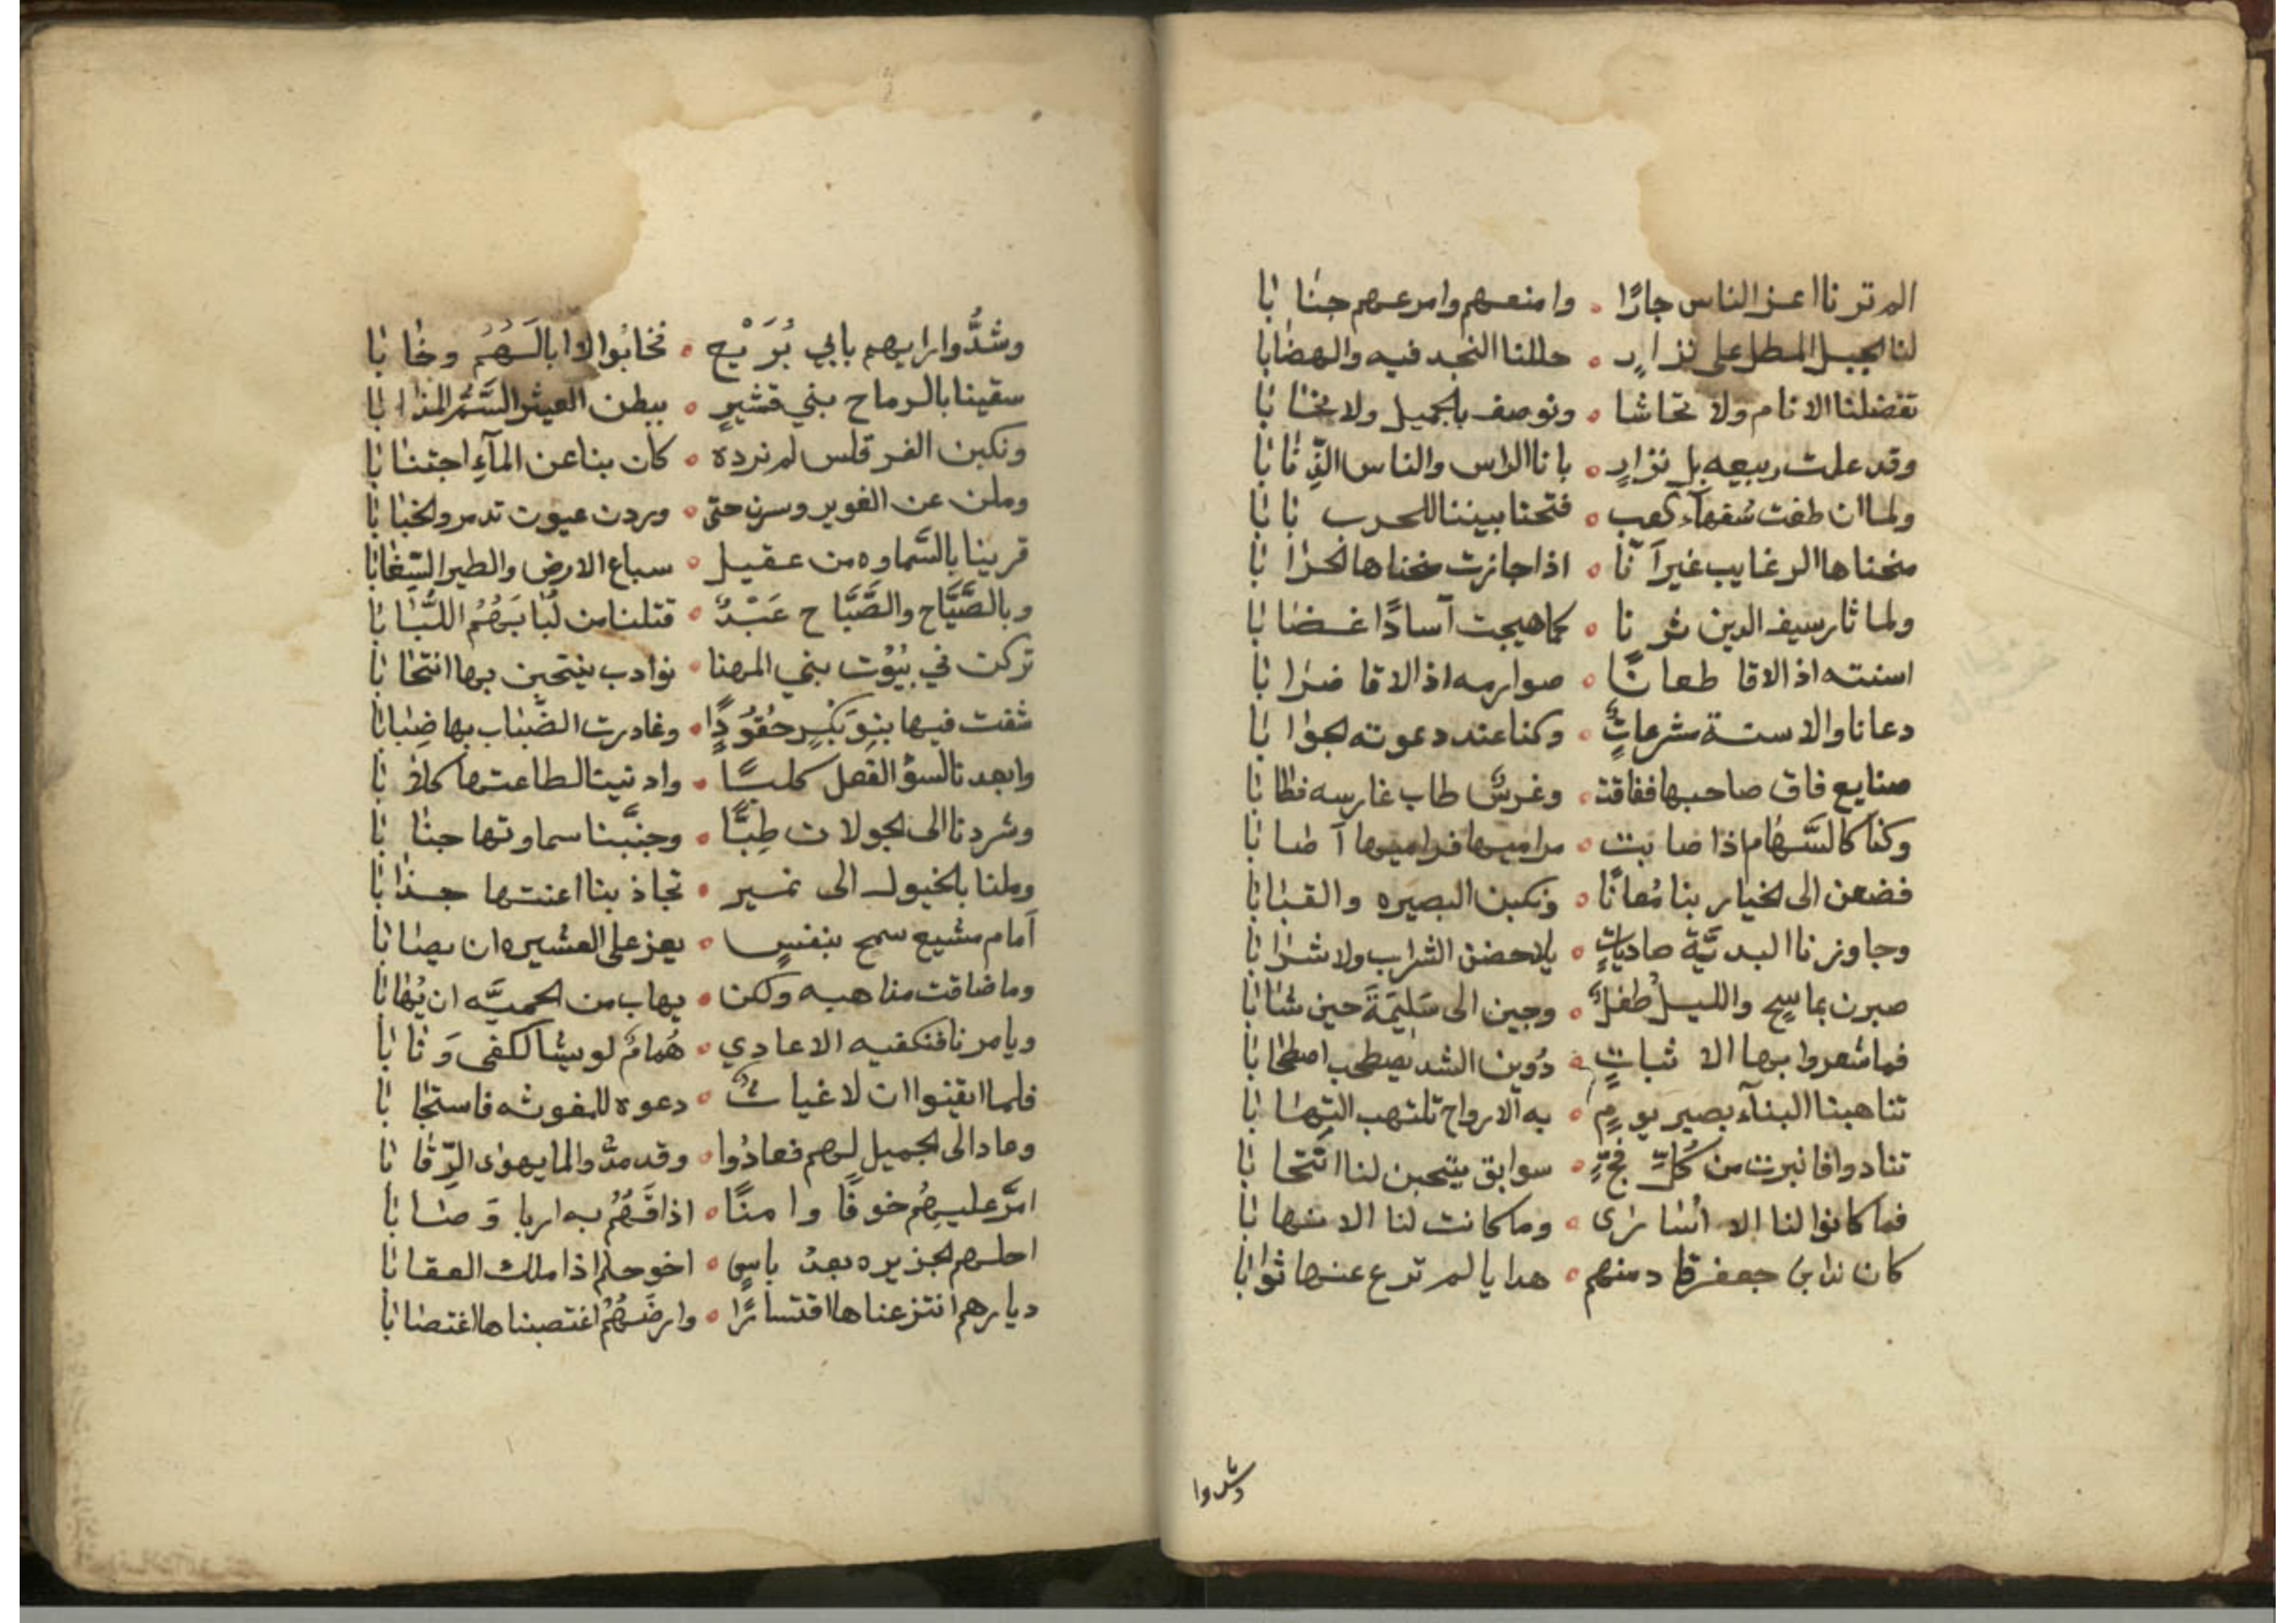 الم تر نا اعز الناس جارًا ٥ وامنعهم وامرعهم جنابا
لنا الجبل المطل على نزارٍ ٥ حللنا النجد فيه والهضابا
تفضلنا الانام ولا تحاشا ٥ ونوصف بالجميل ولا نحابا
وقد علمت ربيعه بل نزارٍ ٥ بانا الراس والناس الذنابا
ولما ان طغت سفهآء كعب ٥ فتحنا بيننا للحرب بابا
منحناها الرغايب غير آنا ٥ اذا جازت منحناها الحرابا
ولما ثار سيف الدين ثرنا ٥ كما هيجت آسادًا غضابا
اسنته اذا لاقا طعانًا ٥ صوارمه اذا لاقا ضرابا
دعانا والاسنة مشرعاتٌ ٥ وكنا عند دعوته لجوابا
صنايع فاق صاحبها ففاقت ٥ وغرسٌ طاب غارسه فطابا
وكنا كالسَّهام اذا صابت ٥ مراميها فراميها آصابا
الى لخيار بنا مُعانًا ٥ ونكبن البصيره والقبابا
وجاوزنا البديَّة صادياتٍ ٥ يلاحضن الشراب ولا شرابا
صبرن بماسح والليل طفلٌ ٥ وجين الى سَلِيمَةَ حين شابا
فما شعروا بها الا ثباتٍ ٥ دُوين الشد
تناهبنا البنآء بصير يومٍ ٥ به الارواح تلتهب التهابا
تنادوا فانبرت من كُلِّ فجٍّ ٥ سوابق ينتحبن لنا انتحابا
فما كانوا لنا الا اُسَارى ٥ وما كانت لنا الا نهابا
كان ندا بن جعفر قاد منهم ٥ هدايا لم ترع عنها ثوابا
وشدوا
وشدُّوا رايهم بابي بُرَيْح ٥ فخابُوا لا ابا لَهُمُ وخابا
سقينا بالرماح بني قشيرٍ ٥ ببطن العيثر السَّمَّ المذابا
ونكبن الفرقلس لم نرده ٥ كان بنا عن المآءِ اجتنابا
وملن عن الغوير وسرن حتى ٥ وردن عيون تدمر ولخبابا
قرينا بالسَّماوه من عقيل ٥ سباع الارض والطير السِّغابا
وبالصَّيَّاح والصَّبَّاح عَبْدٌ ٥ قتلنا من لُبابهُمُ اللُّبابا
تركن في بُيُوت بني المهنا ٥ نوادب ينتحبن بها انتحابا
شفت فيها بنو بَكْرٍ حُقُودًا ٥ وغادرت الضَّباب بها ضِبابا
وابعدنا لسوء الفعل كلبًا ٥ وادنينا لطاعتها كلابا
وشردنا الى لجولان طِيًّا ٥ وجنَّبنا سماوتها جنابا
وملنا بالخيول الى نمير ٥ تجاذبنا اعنتها جذابا
اَمام مشيع سمح بنفسٍ ٥ يعز على العشيره ان يصابا
وما ضاقت مذاهبه ولكن ٥ يهاب من الحميَّه ان يُهابا
ويامرنا فنكفيه الاعادي ٥ هُمامٌ لو يشا لكفى وَنابا
فلما ايقنوا ان لا غياثٌ ٥ دعوه للمغوثه فاستجابا
وعاد الى لجميل لهم فعادُوا ٥ وقد مدُّوا لما يهوى الرِّقابا
امرَّ عليهُم خوفًا وامنًا ٥ اذاقَهُمُ به اريا وَصابا
احلهم لجزيره بعد ياسٍ ٥ اخو حلم اذا ملك العقابا
ديارهم انتزعناها اقتسارًا ٥ وارضَهُمُ اغتصبناها اغتصابا